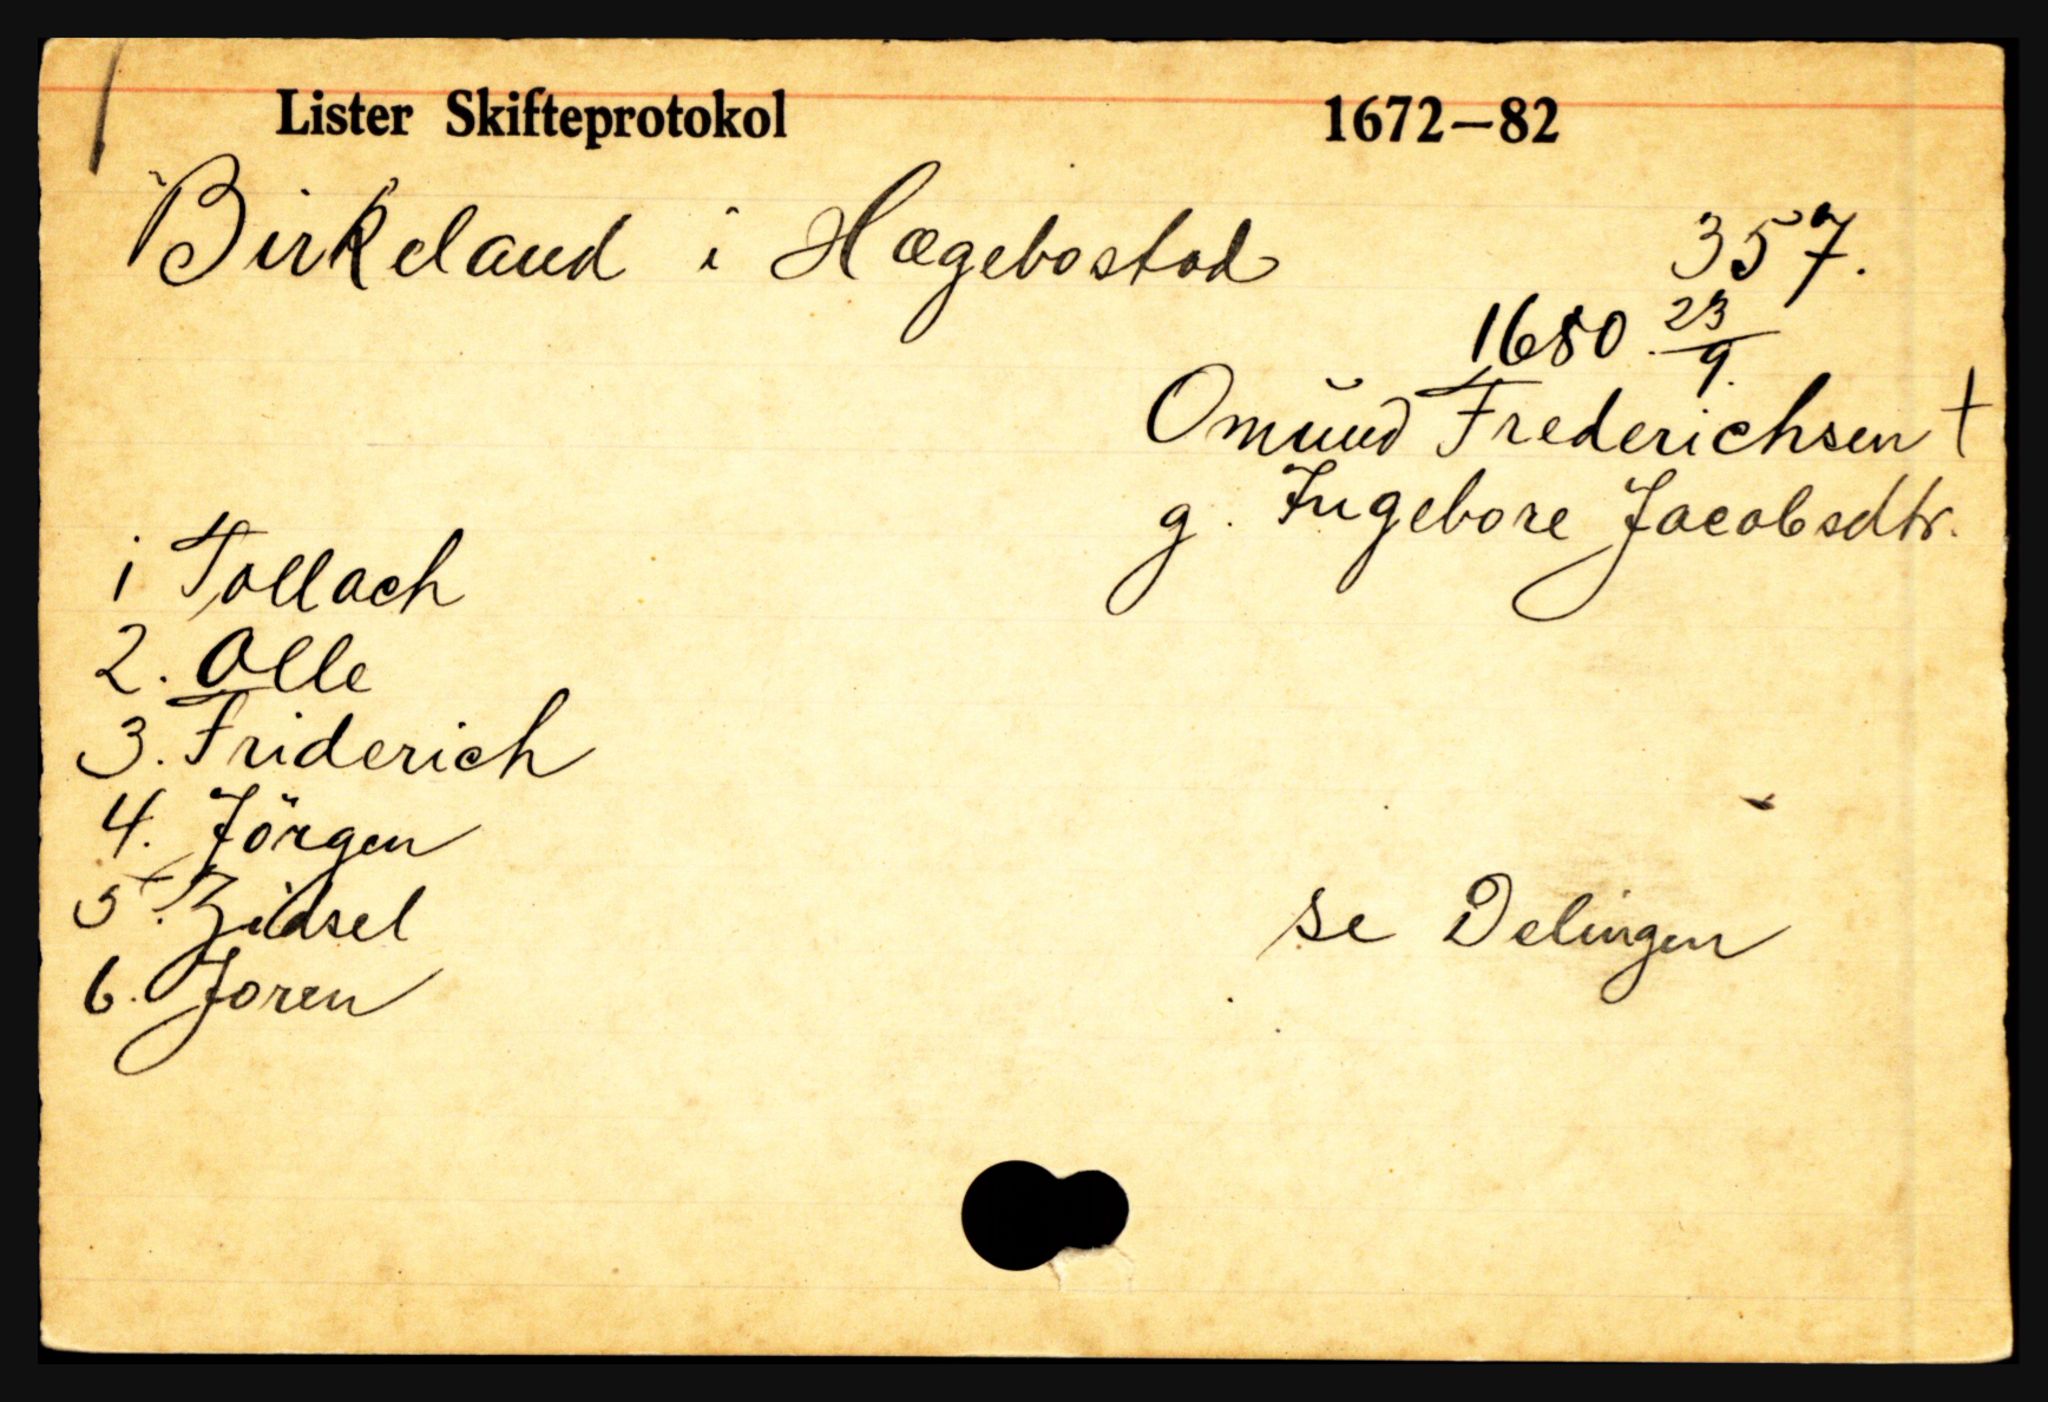 Lister Skifteprotokol 1672–82
Birkeland i Hægebostad 357.
1680 23/9.
Omŭnd Frederichsen †
g. Ingebore Jacobsdtr.
1 Tollach
2. Olle
3. Friderich
4. Jörgen
5. Zidsel
6. Joren
se Delingen